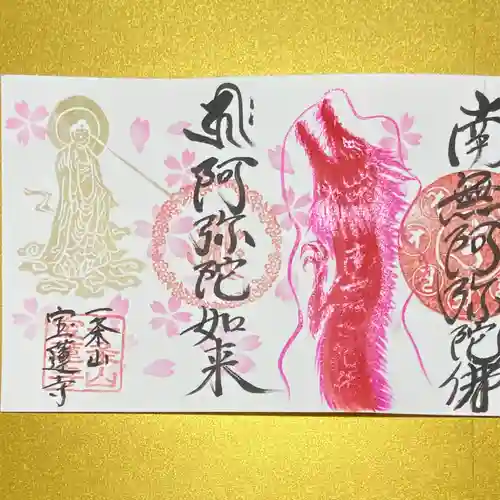 南無阿弥陀佛
阿弥陀如来
一条山
宝蓮寺